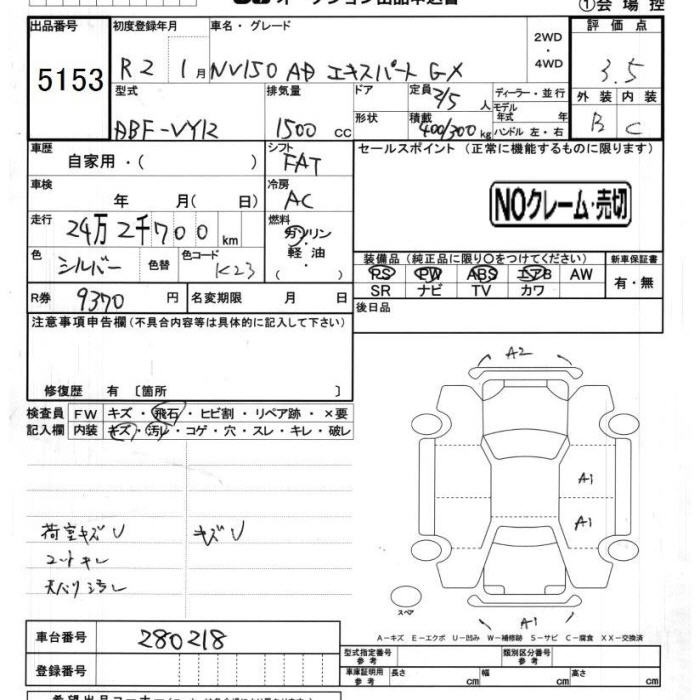 オークション出品申込書
①会場控
出品番号 5153
初度登録年月 R2 1月
車名・グレード NV150 AD エキスパート GX
2WD・4WD
評価点 3.5
型式 DBF-VY12
排気量 1500 cc
ドア
形状
定員 2/5 人
積載 400/300 kg
ディーラー・並行
モデル年式 年
ハンドル 左・右
外装 B
内装 C
車歴 自家用・( )
シフト FAT
セールスポイント (正常に機能するものに限ります)
車検 年 月( 日)
冷房 AC
NOクレーム・売切
走行 24万2千700 km
燃料 ガソリン
軽油・
( )
色 シルバー 色替
色コード K23
装備品 (純正品に限り○をつけてください)
PS PW ABS エアB AW
SR ナビ TV カワ
新車保証書
有・無
R券 9370 円
名変期限 月 日
後日品
注意事項申告欄 (不具合内容等は具体的に記入して下さい)
修復歴 有 〔箇所 〕
検査員記入欄
FW キズ・飛石・ヒビ割・リペア跡・×要
内装 キズ・汚レ・コゲ・穴・スレ・キレ・破レ
A2
A1
A1
荷室キズU キズU
シートキレ
天バリ汚レ
スペア
A1
A-キズ E-エクボ U-凹み W-補修跡 S-サビ C-腐食 XX-交換済
車台番号 280218
登録番号
型式指定番号 参考
類別区分番号 参考
車庫証明用 参考 長さ cm 幅 cm 高さ cm